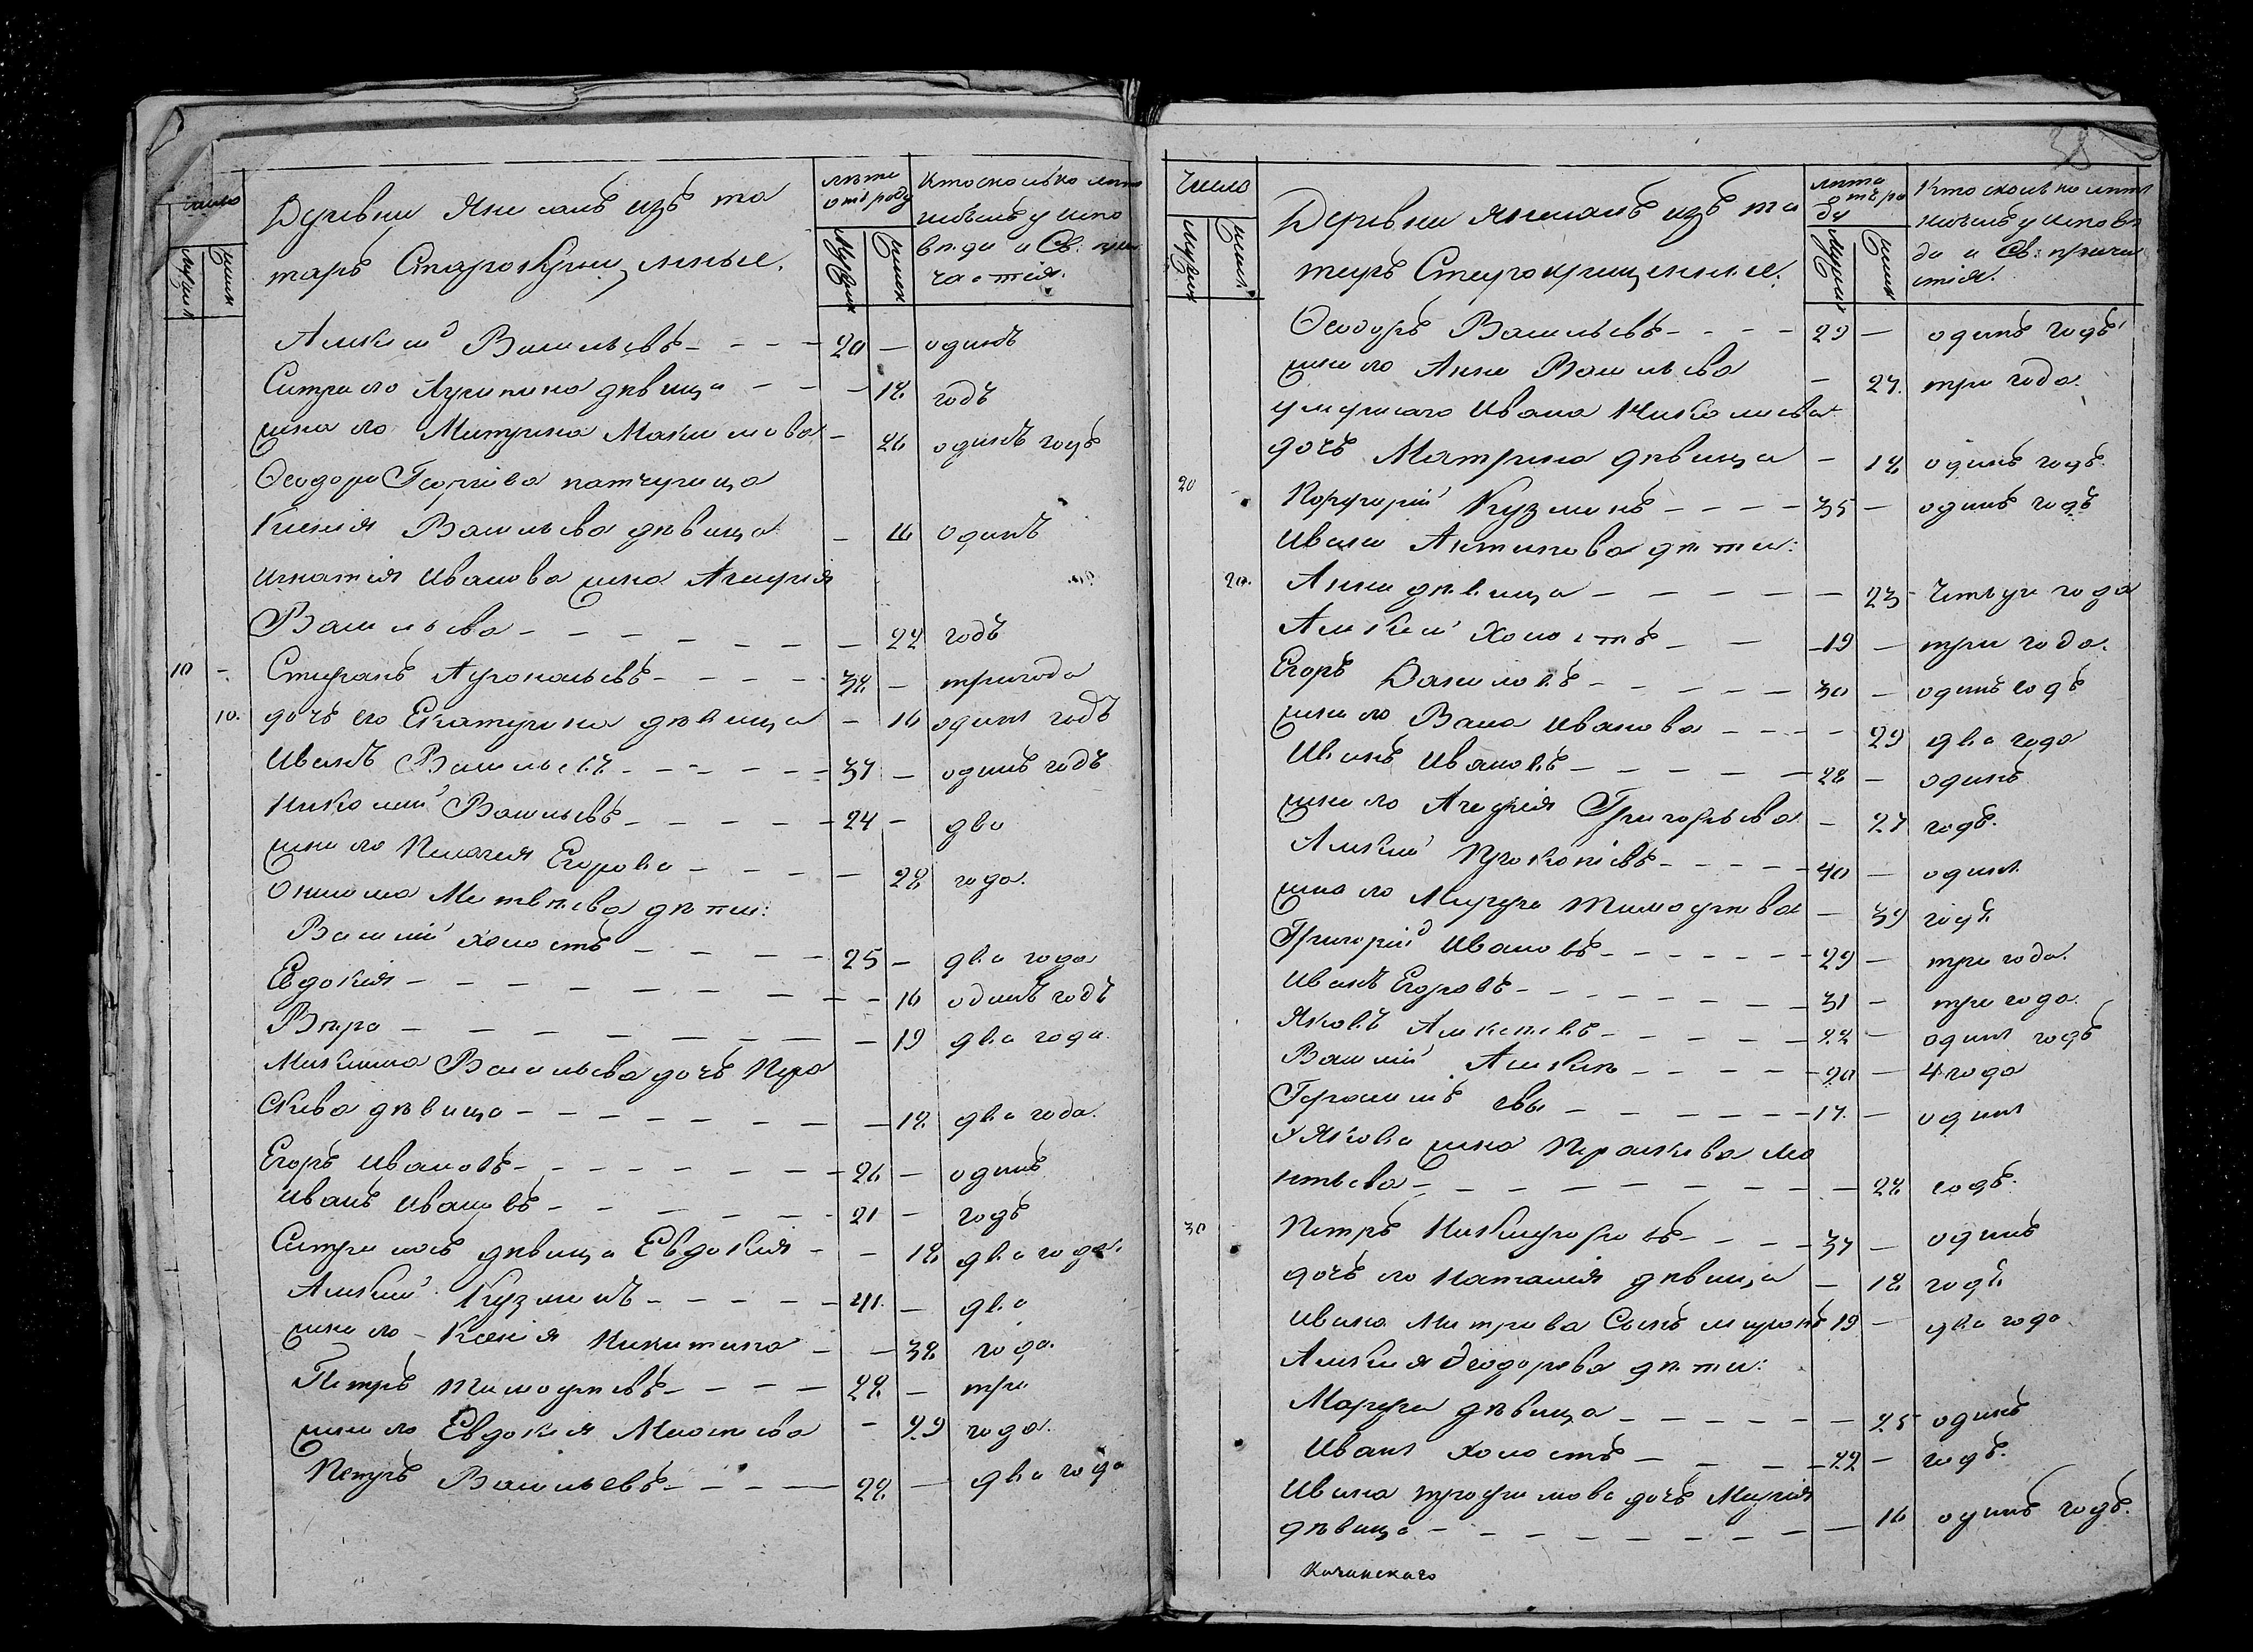 число
мужеск
женск
Деревни Янсаль изъ та
таръ Старокрещенные.
лѣта отъ роду
мужеск
женск
Кто сколько лѣтъ
небылъ у испо
вѣди и Св. при
частія.
Алексей Васильевъ - - - - 20 — одинъ
Сестра его Агрипина дѣвица - - - 18 годъ
жена его Матрена Максимова - 26 одинъ годъ
Ѳеодора Георгіева патчерица
Ксенія Васильева дѣвица - 16 одинъ
Игнатія Иванова жена Агафия
Васильева - - - - - - - 22 годъ
10 - Стефанъ Афонасьевъ - - - - 38 — три года
10. дочь его Екатерина дѣвица - 16 одинъ годъ
Иванъ Васильевъ - - - - - 37 — одинъ годъ
Николай Васильевъ - - - - - 24 — два
жена его Пелагея Егорова - - - - 28 года.
Онисима Матвѣева дѣти:
Василій холостъ - - - - 25 — два года
Евдокія - - - - - - - - 16 одинъ годъ
Вѣра - - - - - - - - 19 два года.
Максима Васильева дочь Пара
скева дѣвица - - - - - - - 18 два года.
Егоръ Ивановъ - - - - - - - 26 — одинъ
Иванъ Ивановъ - - - - - - 21 — годъ
Сестра ихъ дѣвица Евдокія - - 18 два года.
Алексей Кузминъ - - - - - 41. — два
жена его - Ксенія Никитина - - 38 года.
Петръ Тимоѳеевъ - - - - 28 — три
жена его Евдокия Моисеева - 29 года.
Петръ Васильевъ - - - - - 28 — два года
38
Число
мужеск
женск.
Деревни Янсаль изъ та
таръ Старокрещенные.
лѣта
отъ ро
ду
мужеск
женск
Кто сколько лѣтъ
небылъ у исповѣ
ди и Св. прича
стія.
Ѳеодоръ Васильевъ - - - - 29 — одинъ годъ
жена его Анна Васильева - 27. три года.
умершаго Ивана Николаева
дочь Матрена дѣвица - 18 одинъ годъ.
20 Порфирій Кузминъ - - - - 35 — одинъ годъ
Ивана Антипова дѣти:
20. Анна дѣвица - - - - - - 23 Четыре года
Алексей холостъ - - - 19 — три года.
Егоръ Даниловъ - - - - - 30 — одинъ годъ
жена его Васа Иванова - - - - 29 два года
Иванъ Ивановъ - - - - - 28 — одинъ
жена его Агафия Григорьева - 27 годъ.
Алексей Прокопіевъ - - - - 40 — одинъ
жена его Марфа Тимоѳеева - 39 годъ
Григорій Ивановъ - - - - - - 29 — три года.
Иванъ Егоровъ - - - - - - - 31 — три года.
Яковъ Алексѣевъ - - - - - 22 — одинъ годъ
Василій Алексѣ - - - - - 20 — 4 года
Герасимъ евы - - - - - - 17. — одинъ
У Якова жена Параскева Ма
тѵеева - - - - - - - - - 28 годъ.
30 Петръ Никифоровъ - - - - 37 — одинъ
дочь его Наталія дѣвица - 18 годъ
Ивана Митрева Сынъ миронъ 19 — два года
Алексея Ѳеодорова дѣти:
Марфа дѣвица - - - - - - 25 одинъ
Иванъ холостъ - - - - 22 — годъ.
Ивана трофимова дочь Марія
дѣвица - - - - - - - - 16 одинъ годъ.
Качинскаго